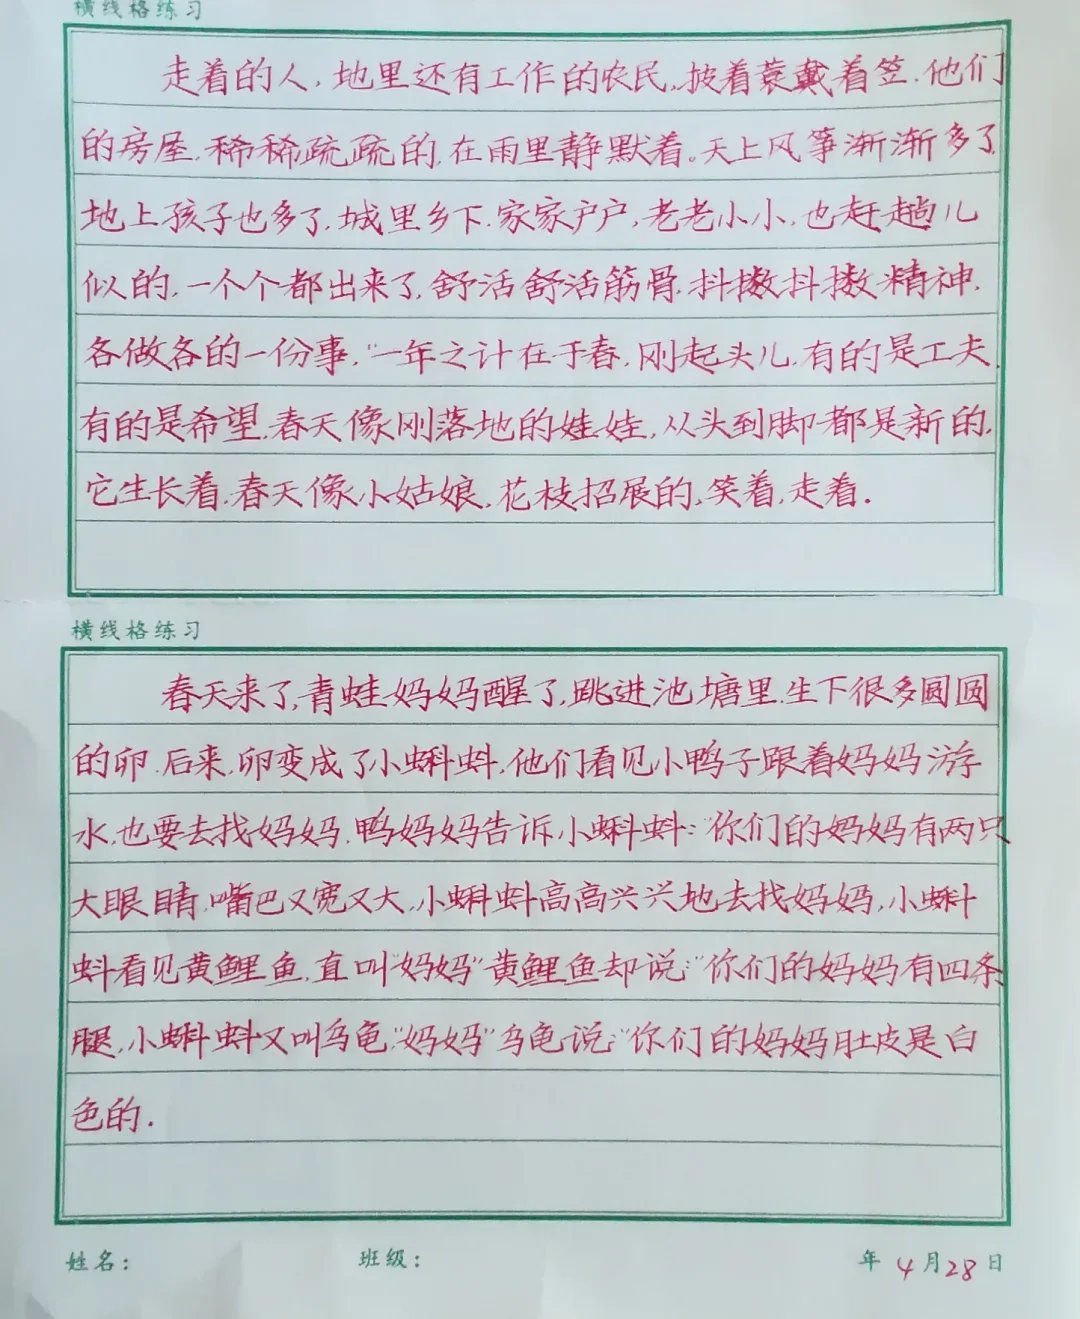 横线格练习
走着的人,地里还有工作的农民,披着蓑戴着笠.他们
的房屋.稀稀疏疏的.在雨里静默着。天上风筝渐渐多了.
地上孩子也多了.城里乡下.家家户户,老老小小.也赶趟儿
似的.一个个都出来了.舒活舒活筋骨.抖擞抖擞精神.
各做各的一份事."一年之计在于春,刚起头儿.有的是工夫.
有的是希望.春天像刚落地的娃娃,从头到脚都是新的.
它生长着.春天像小姑娘.花枝招展的,笑着,走着.
横线格练习
春天来了,青蛙妈妈醒了,跳进池塘里.生下很多圆圆
的卵.后来.卵变成了小蝌蚪.他们看见小鸭子跟着妈妈游
水,也要去找妈妈.鸭妈妈告诉小蝌蚪:"你们的妈妈有两只
大眼睛,嘴巴又宽又大,小蝌蚪高高兴兴地去找妈妈,小蝌
蚪看见黄鲤鱼.直叫"妈妈"黄鲤鱼却说:"你们的妈妈有四条
腿,小蝌蚪又叫乌龟"妈妈"乌龟说:"你们的妈妈肚皮是白
色的.
姓名: 班级: 年4月28日